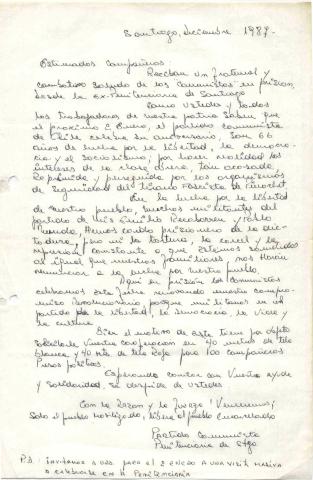 Santiago, Diciembre 1987.
Estimados Compañeros
Reciban un fraternal y
combativo saludo de los Comunistas en prision,
desde la ex-Penitenciaria de Santiago
Como ustedes y todos
los trabajadores de nuestra patria saben que
el proximo 2 Enero, el partido comunista
de Chile celebra su aniversario, son 66
años de lucha por la libertad, la democra-
cia y el socialismo; por hacer realidad los
intereses de la clase obrera, tan acosada
reprimida y perseguida por los organismos
de seguridad del tirano fascista de Pinochet
En la lucha por la libertad
de nuestro pueblo, muchos militantes del
partido de Luis Emilio Recabarren y Pablo
Neruda, hemos caido prisionero de la dic-
tadura, pero ni la tortura, la carcel y la
represion constante a que estamos sometidos
al igual que nuestros familiares, nos haran
renunciar a la lucha por nuestro pueblo.
Aqui en prision los comunistas
celebramos este aniversario renovando nuestro compro-
miso Revolucionario, porque militamos en el
partido de la libertad, la democracia, la vida y
la cultura.
Bien el motivo de esta tiene por objeto
solicitarle vuestra cooperacion en 40 metros de tela
blanca, y 40 mts de tela roja para 100 compañeros
Presos politicos.
Esperando contar con vuestra ayuda
y solidaridad, se despide de ustedes
Con la Razon y la fuerza! Venceremos!
Solo el pueblo movilizado, libera al pueblo encarcelado
Partido Comunista
Penitenciaria de Stgo
P.D: INVITAMOS A UDS. PARA EL 2 ENERO A UNA VISITA MASIVA
A CELEBRARSE EN LA PENITENCIARIA